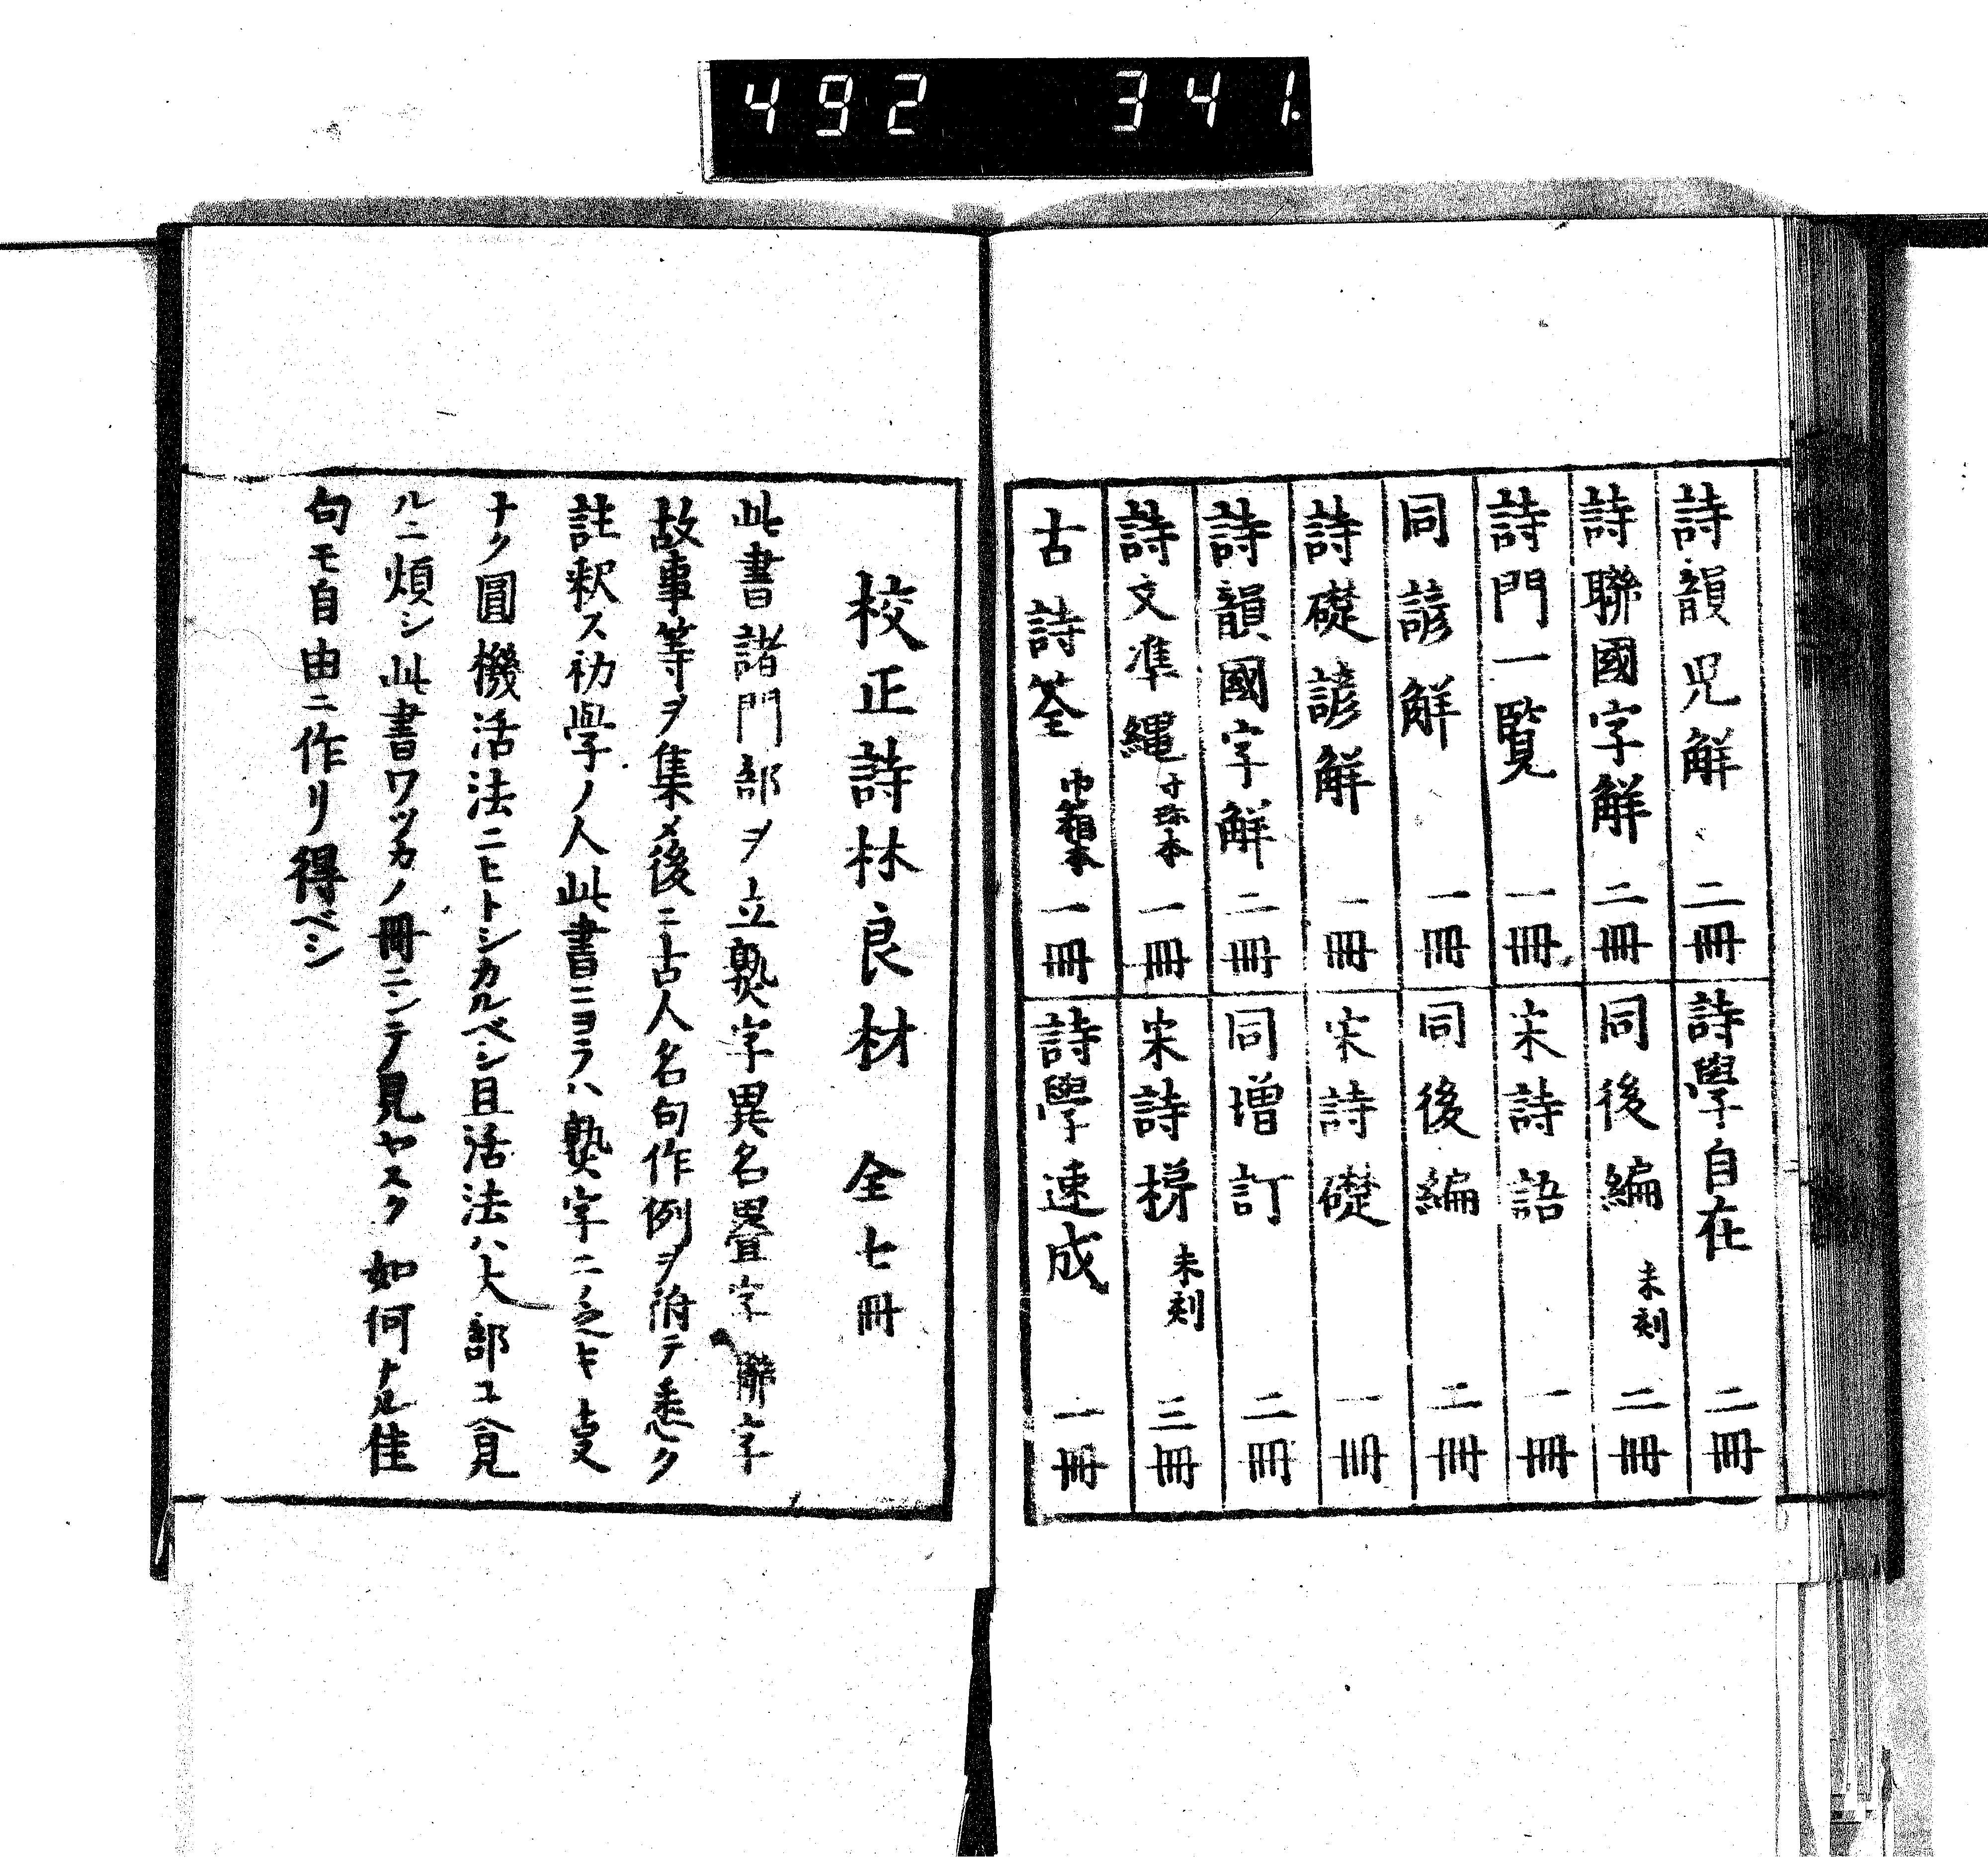 492 341.
詩韻児解 二冊
詩聯國字解 二冊
詩門一覧 一冊
同諺解 一冊
詩礎諺解 一冊
詩韻國字解 二冊
詩文準縄 寸珍本 一冊
古詩荃 巾箱本 一冊
詩學自在 二冊
同後編 未刻 二冊
宋詩語 一冊
同後編 二冊
宋詩礎 一冊
同増訂 二冊
宋詩梯 未刻 三冊
詩學速成 一冊
校正詩林良材 全七冊
此書諸門部ヲ立熟字異名畳字聯字
故事等ヲ集メ後ニ古人名句作例ヲ附テ悉ク
註釈ス初學ノ人此書ニヨラハ熟字ニ乏キ叓
ナク圓機活法ニヒトシカルベシ且活法ハ大部ユヘ見
ルニ煩シ此書ワツカノ冊ニシテ見ヤスク如何ナル佳
句モ自由ニ作リ得ベシ